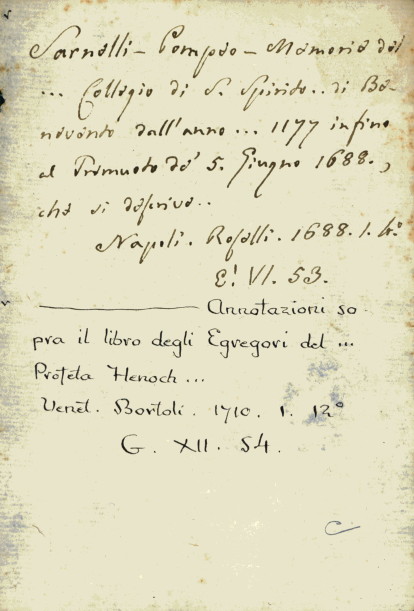 Sarnelli - Pompeo - Memorie del
... Collegio di S. Spirito.. di Be-
nevento dall'anno ... 1177 infino
al Tremuoto de' 5. Giugno 1688.,
che si descrive..
Napoli. Roselli. 1688. 1. 4.°
E! VI. 53.
Annotazioni so
pra il libro degli Egregori del ...
Profeta Henoch ...
Venet. Bortoli. 1710. 1. 12°
G. XII. 54.